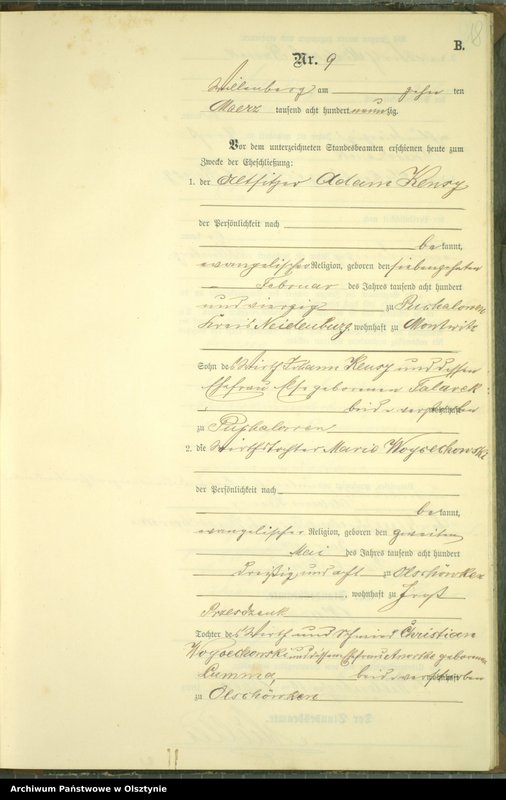 B.
Nr. 9
Willenberg am zehn ten
Maerz tausend acht hundert neunzig.
Vor dem unterzeichneten Standesbeamten erschienen heute zum
Zwecke der Eheschließung:
1. der Altsitzer Adam Kensy
der Persönlichkeit nach
bekannt,
evangelischer Religion, geboren den siebenzehnten
Februar des Jahres tausend acht hundert
und vierzig zu Puchalowen
Kreis Neidenburg, wohnhaft zu Montwitz
Sohn des Wirth Johann Kensy und dessen
Ehefrau geborenen Talarek
beide verstorben
zu Puchalowen
2. die Wirthstochter Marie Woyseckowski
der Persönlichkeit nach
bekannt,
evangelischer Religion, geboren den zweiten
Mai des Jahres tausend acht hundert
dreißig und acht zu Olschöwken
, wohnhaft zu Groß
Przesdzenk
Tochter des Wirth und Schmied Christian
Woyseckowski und dessen Ehefrau geborenen
Lumma, beide verstorben
zu Olschöwken
Archiwum Państwowe w Olsztynie